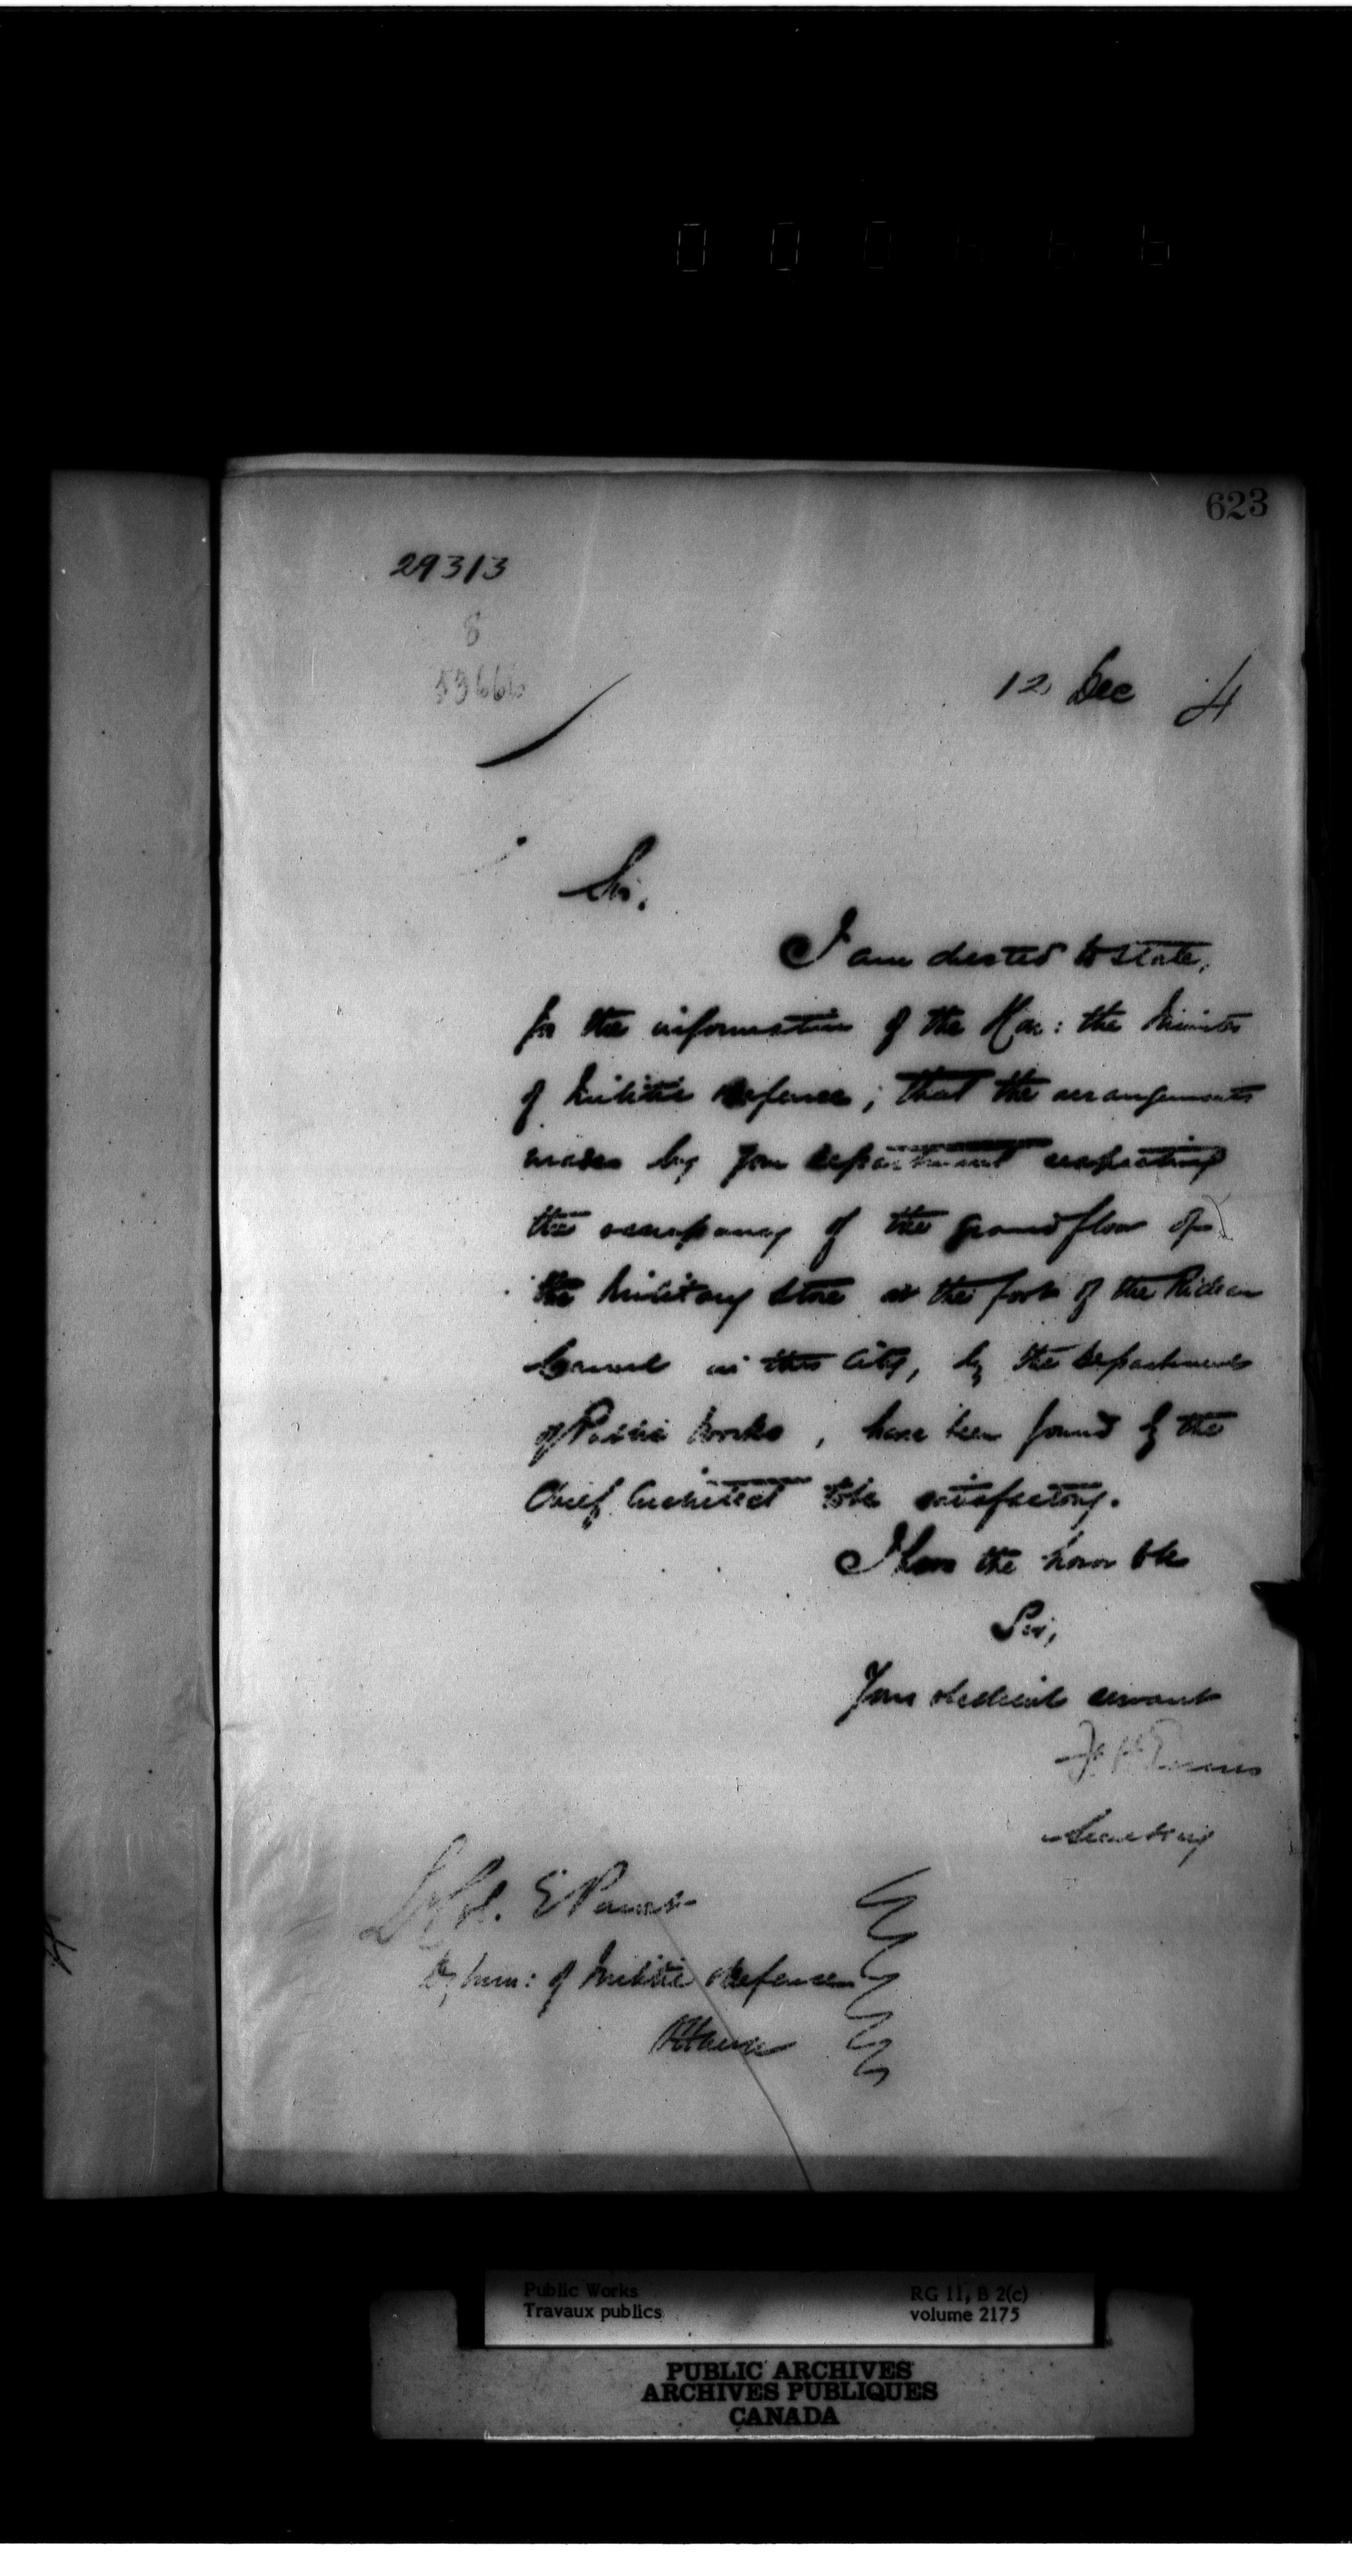 623
29313
8
53666
12 Dec 4
Sir.
I am directed to state,
for the information of the Hon: the Minister
of Militia & Defence; that the arrangements
made by your Department respecting
the occupancy of the ground floor of
the Military Store at the foot of the Rideau
Canal in this City, by the Department
of Public Works, have been found by the
Chief Architect to be satisfactory.
I have the honor to be
Sir,
Your obedient servant
Secretary
Lt Col. E Panet
Dy Min: of Militia & Defence
Ottawa
Public Works
Travaux publics
RG 11, B 2(c)
volume 2175
PUBLIC ARCHIVES
ARCHIVES PUBLIQUES
CANADA